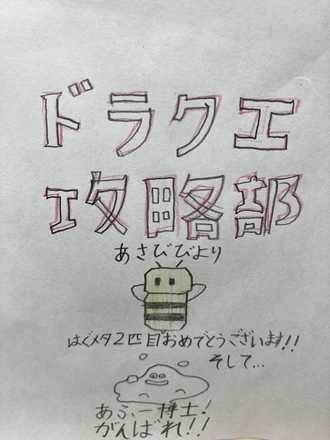 ドラクエ
攻略部
あさびびより
はぐメタ2匹目おめでとうございます!!
そして...
あふー博士!
がんばれ!!